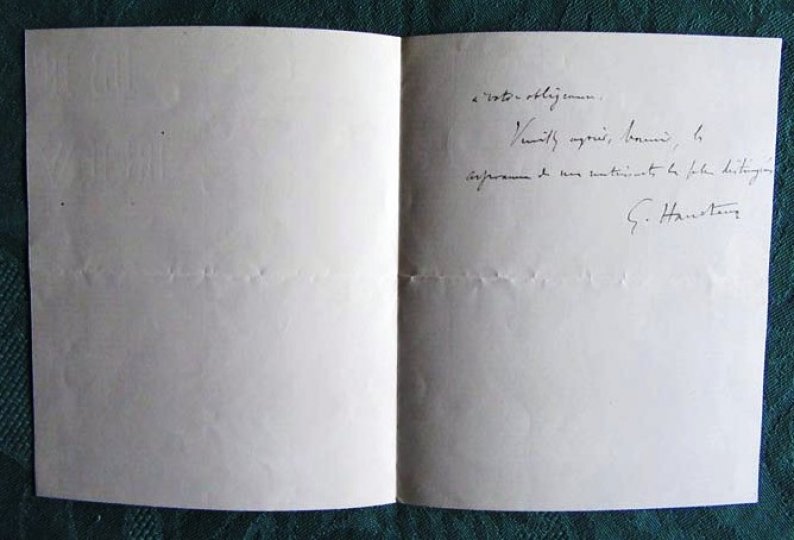 à votre obligeance.
Veuillez agréer, Monsieur, les
assurances de mes sentiments les plus distingués
G.